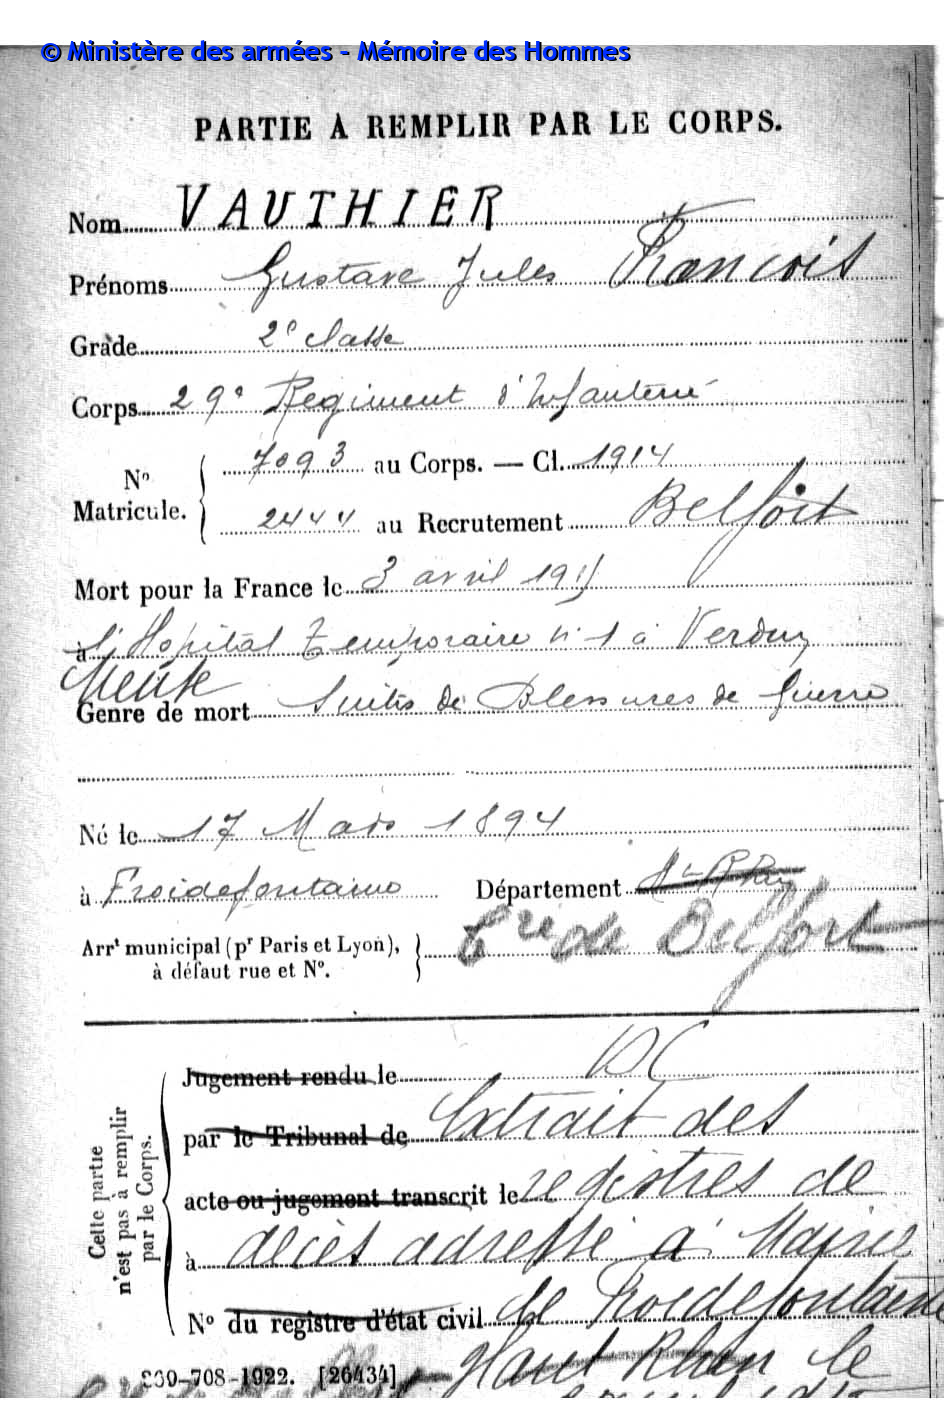 © Ministère des armées - Mémoire des Hommes
PARTIE A REMPLIR PAR LE CORPS.
Nom VAUTHIER
Prénoms Gustave Jules François
Grade 2e classe
Corps 29e Régiment d'Infanterie
No Matricule. 7093 au Corps. — Cl. 1914
2444 au Recrutement Belfort
Mort pour la France le 3 avril 1915
à l'Hopital Temporaire n° 1 à Verdun
Meuse
Genre de mort Suites de Blessures de Guerre
Né le 17 Mars 1894
à Froidefontaine Département Ht Rhin
Arrt municipal (pr Paris et Lyon), à défaut rue et No. Tre de Belfort
Cette partie n'est pas à remplir par le Corps.
Jugement rendu le DC
par le Tribunal de Extrait des
acte ou jugement transcrit le registres de
à décès adressé à Mairie
No du registre d'état civil de Froidefontaine
Haut Rhin le
-708-1922. [26434]